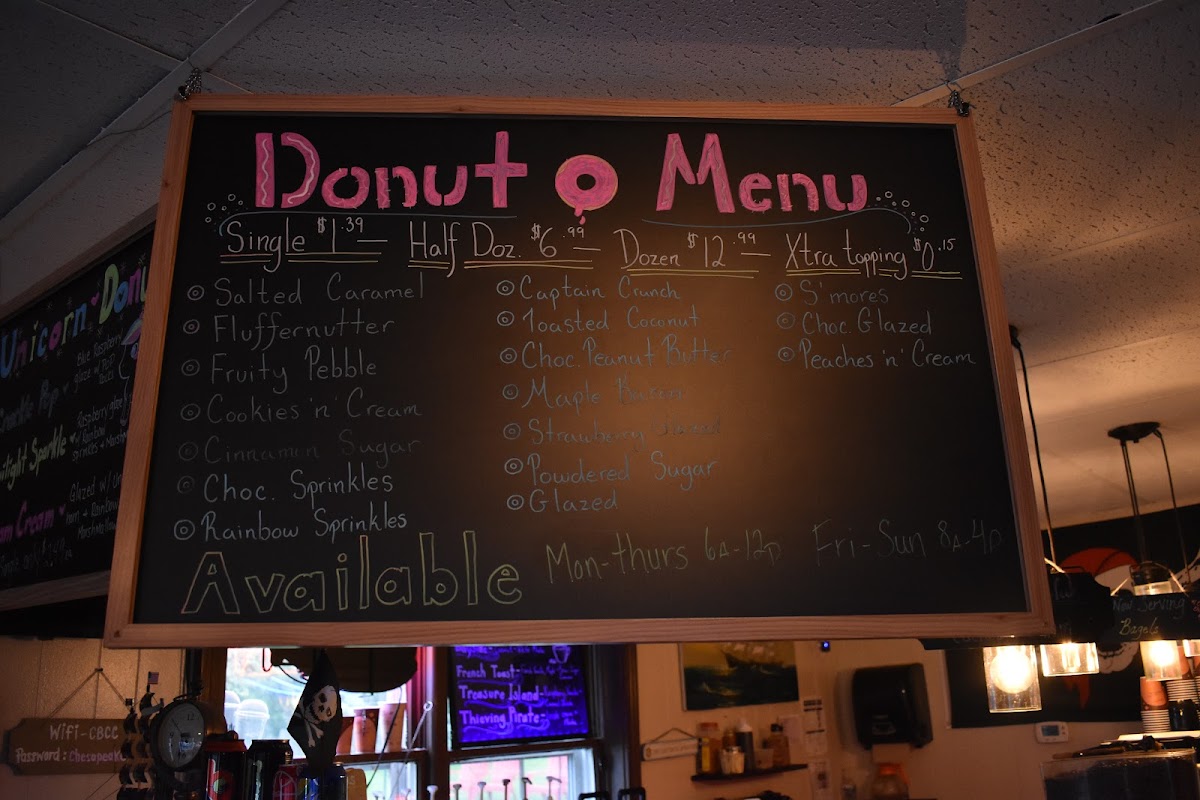 Donut Menu
Single $1.39 Half Doz. $6.99 Dozen $12.99 Xtra topping $0.15
Salted Caramel
Fluffernutter
Fruity Pebble
Cookies 'n' Cream
Cinnamun Sugar
Choc. Sprinkles
Rainbow Sprinkles
Captain Crunch
Toasted Coconut
Choc. Peanut Butter
Maple Bacon
Strawberry Glazed
Powdered Sugar
Glazed
S'mores
Choc. Glazed
Peaches 'n' Cream
Available Mon-thurs 6A-12p Fri-Sun 8A-4p
Unicorn Donu
Blue Raspberry
Sparkle Pop
Twilight Sparkle
Cream
French Toast-
Treasure Island-
Thieving Pirate-
WiFi-CBCC
Password: Chesapeake
Now Serving
Bagels